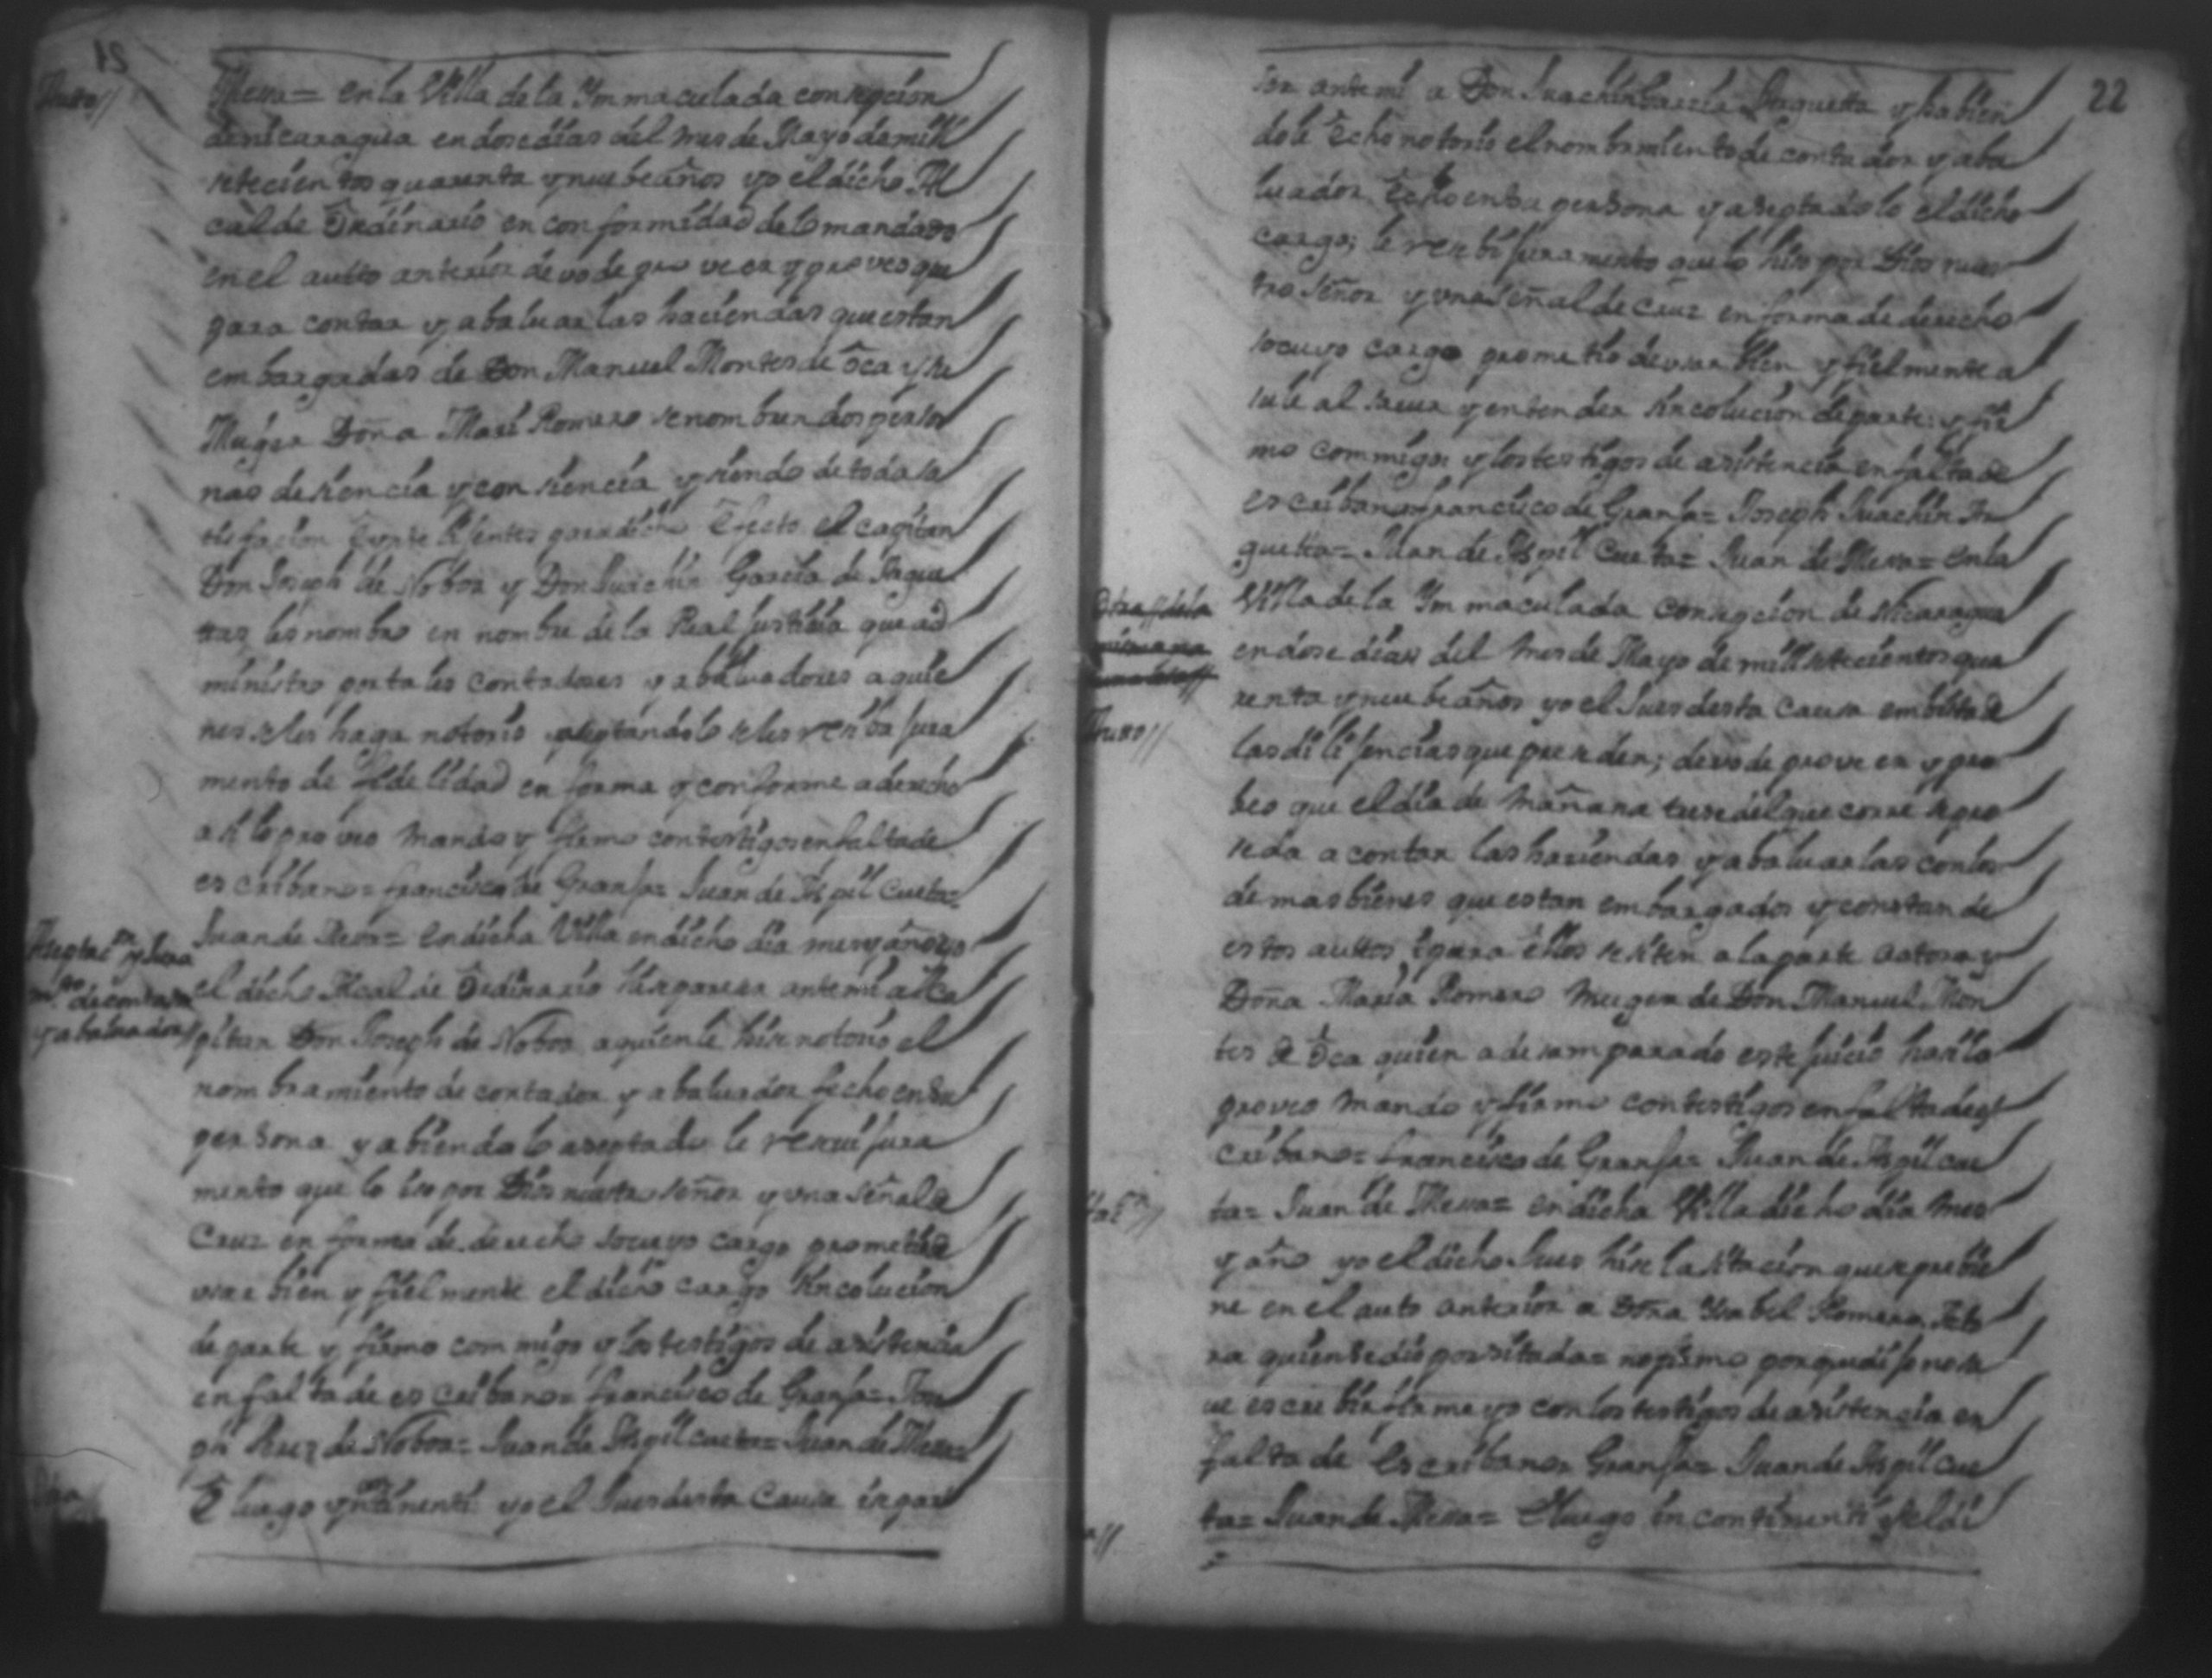 21
Auto//
Messa= en la Villa de la Ymmaculada consepcion
de nicaragua en dose dias del mes de Mayo de mill
setecientos quarenta y nuebe años yo el dicho Al
calde Ordinario en conformidad de lo mandado
en el autto anterior devo de proveer y proveo que
para contar y abaluar las haciendas que estan
embargadas de Don Manuel Montes de Oca y su
Muger Doña Mari Romero se nombren dos perso
nas de siencia y consiencia y siendo de toda sa
tisfacion para dicho Efecto el capitan
Don Joseph de Noboa y Don Juachin Garcia de
los nombro en nombre de la Real Justicia que ad
ministro por tales contadores y abaluadores a quie
nes se les haga notorio aseptandolo se les resiba jura
mento de fidelidad en forma y conforme a derecho
asi lo proveo mando y firmo con testigos en falta de
escribano= francisco de Granja= Juan de Aspilcueta=
Juan de Mesa= en dicha Villa en dicho dia mes y año yo
el dicho Alcalde Ordinario hise pareser ante mi al Ca
pitan Don Joseph de Noboa a quien le hise notorio el
nombramiento de contador y abaluador fecho en su
persona y abiendolo aseptado le resevi jura
mento que lo iso por Dios nuestro señor y una señal de
Cruz en forma de derecho socuyo cargo prometio de
usar bien y fielmente el dicho cargo sin colucion
de parte y firmo commigo y los testigos de asistencia
en falta de escribano= francisco de Granja= Jos
ph Ruiz de Noboa= Juan de Aspilcueta= Juan de Messa=
E luego yncontinenti yo el Jues desta Causa is pare
Aseptacon y jura
mto de contador
y abaluador//
Otra
22
ser ante mi a Don Juachin Garcia Yraguetta y habien
dole Echo notorio el nombramiento de contador y aba
luador Echo en su persona y aseptadolo el dicho
cargo; le resebi juramento que lo hiso por Dios nues
tro Señor y una señal de Cruz en forma de derecho
socuyo cargo prometio de usar bien y fielmente a
su le al saver y entender sin colucion de parte: y fir
mo commigo y los testigos de asistencia en falta de
escribano= francisco de Granja= Joseph Juachin Yra
guetta= Juan de Aspilcueta= Juan de Messa= en la
Villa de la Ymmaculada consepcion de Nicaragua
en dose dias del mes de Mayo de mill setecientos qua
renta y nuebe años yo el Jues desta causa en bista de
las dilijencias que preseden; devo de proveer y pro
beo que el dia de mañana trese del que corre se pro
seda a contar las haziendas y abaluarlas con los
demas bienes que estan embargados y constan de
estos auttos y para ellos se siten a la parte actora y
Doña Maria Romero Muger de Don Manuel Mon
tes de Oca quien a desamparado este juicio hasi lo
proveo mando y firmo con testigos en falta de es
cribano= francisco de Granja= Juan de Aspilcue
ta= Juan de Messa= en dicha Villa dicho dia mes
y año yo el dicho Jues hise la sitacion que se prebie
ne en el auto anterior a Doña Ysabel Romero Acto
ra quien se dio por sitada= no firmo porque dijo no sa
ve escrebir firme yo con los testigos de asistencia en
falta de Escribano= Granja= Juan de Aspilcue
ta= Juan de Messa= E luego in continenti yo el di
Auto//